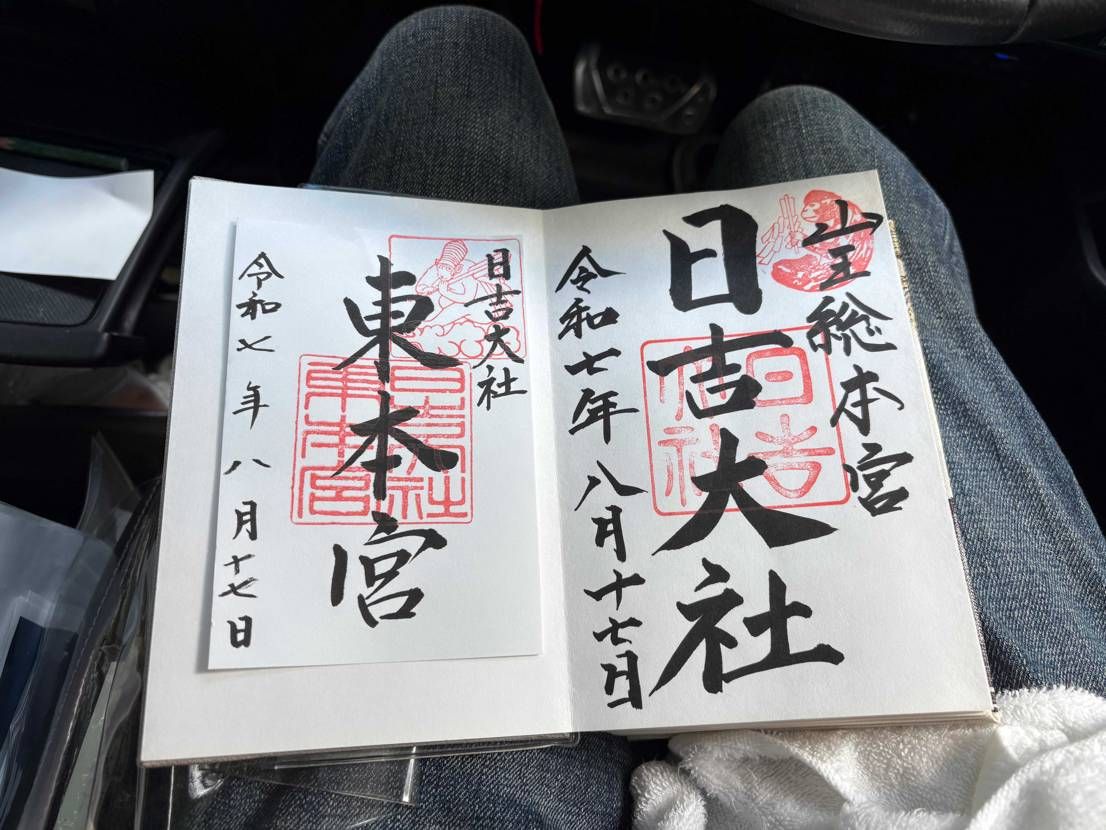 山王総本宮
日吉大社
日吉大社
令和七年八月十七日
日吉大社
東本宮
日吉大社
東本宮
令和七年八月十七日